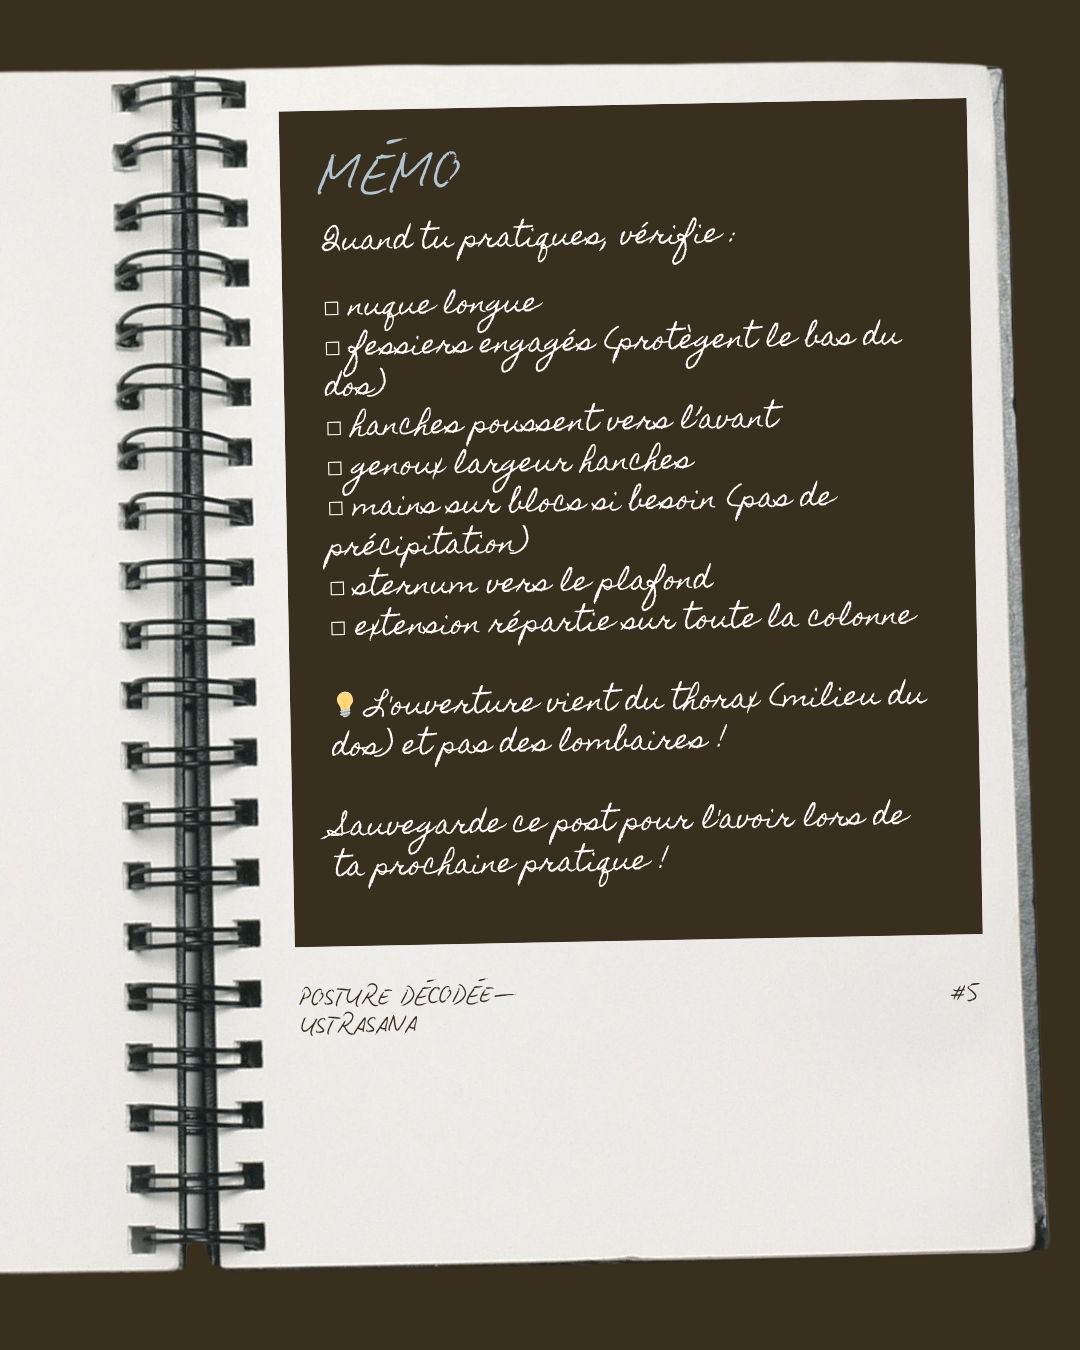 MÉMO
Quand tu pratiques, vérifie :
☐ nuque longue
☐ fessiers engagés (protègent le bas du
dos)
☐ hanches poussent vers l'avant
☐ genoux largeur hanches
☐ mains sur blocs si besoin (pas de
précipitation)
☐ sternum vers le plafond
☐ extension répartie sur toute la colonne
💡 L'ouverture vient du thorax (milieu du
dos) et pas des lombaires !
Sauvegarde ce post pour l'avoir lors de
ta prochaine pratique !
POSTURE DÉCODÉE—
USTRASANA
#5